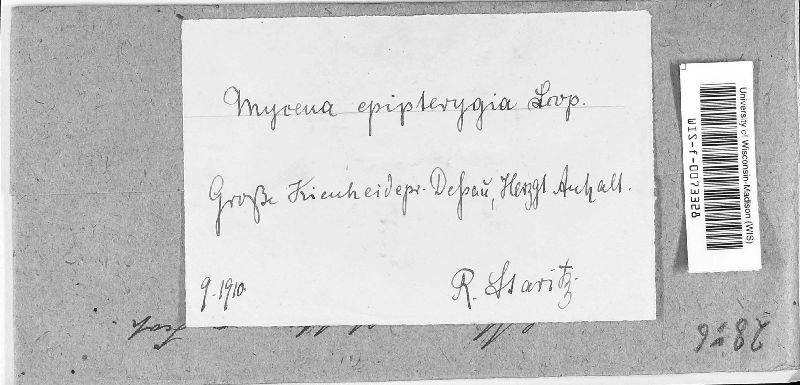 Mycena epipterygia Scop.
Große Kienheide pr. Deßau, Herzgt. Anhalt.
9. 1910.
R. Staritz.
University of Wisconsin-Madison (WIS)
WIS-f-0073328